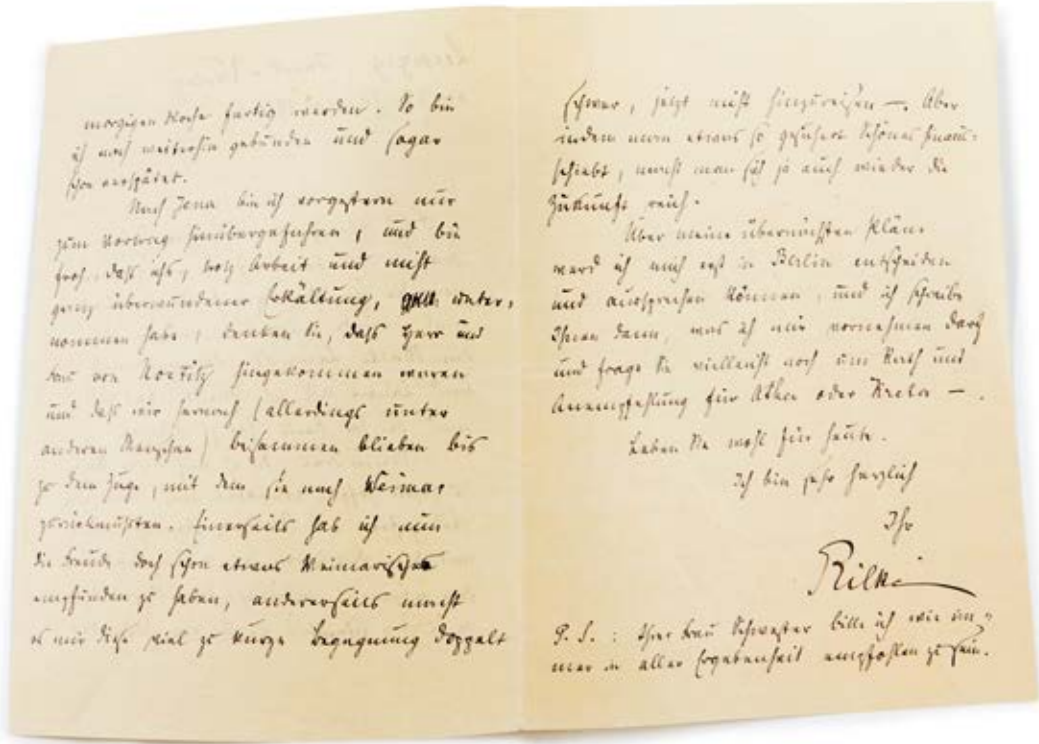 morgigen Woche fertig werden. So bin
ich noch weiterhin gebunden und sogar
schon verspätet.
Nach Jena bin ich vorgestern nur
zum Vortrag hinübergefahren, und bin
froh, daß ichs, trotz Arbeit und nicht
ganz überwundener Erkältung, unter-
nommen habe; denken Sie, daß Herr und
Frau von Nostitz hingekommen waren
und daß wir hernach (allerdings unter
anderen Menschen) beisammen blieben bis
zu dem Zuge, mit dem sie nach Weimar
zurückmußten. Einerseits hab ich nun
die Freude doch schon etwas Weimarisches
empfunden zu haben, andererseits macht
es mir diese viel zu kurze Begegnung doppelt
schwer, jetzt nicht hinzureisen —. Aber
indem man etwas so gesichert Schönes hinaus-
schiebt, macht man sich ja auch wieder die
Zukunft reich.
Über meine übernächsten Pläne
werd ich auch erst in Berlin entscheiden
und aussprechen können, und ich schreibe
Ihnen dann, was ich mir vornehmen darf
und frage Sie vielleicht noch um Rath und
Anempfehlung für Athen oder Kreta —.
Leben Sie wohl für heute.
Ich bin sehr herzlich
Ihr
Rilke
P. S.: Ihrer Frau Schwester bitte ich wie im-
mer in aller Ergebenheit empfohlen zu sein.